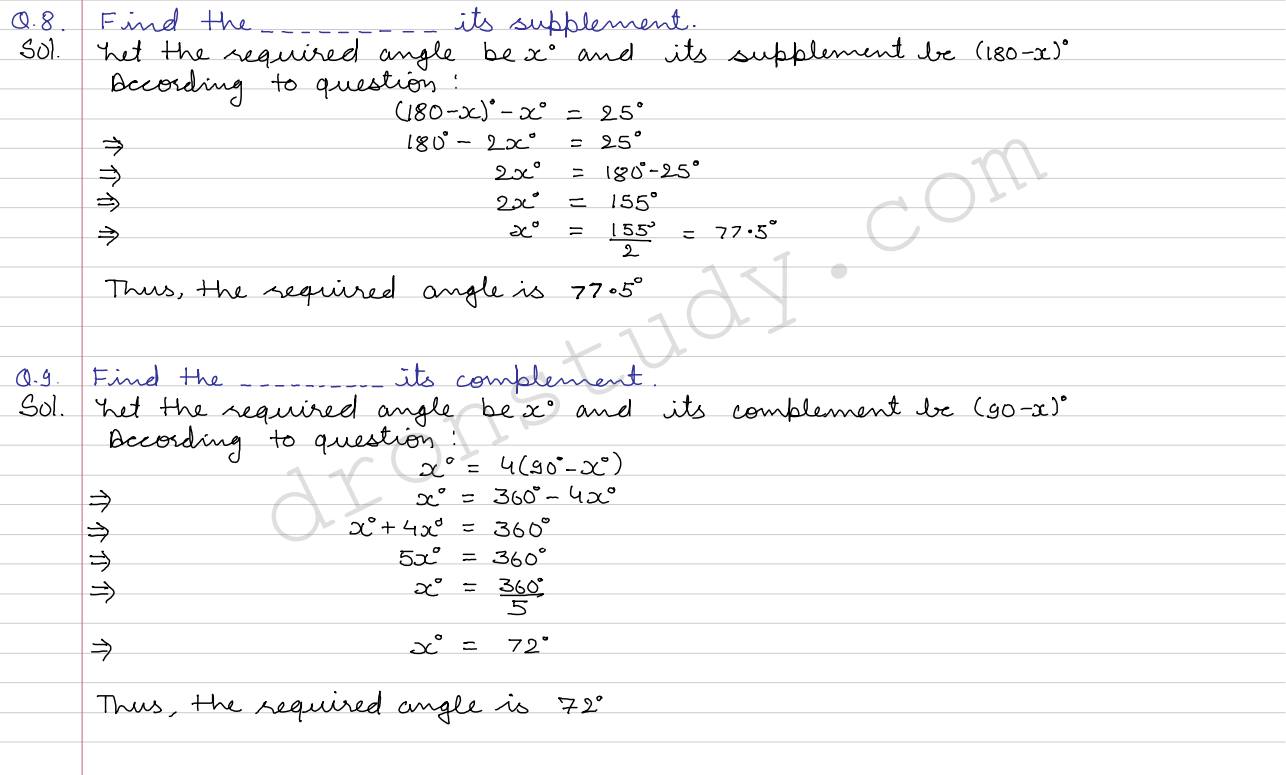 Q.8. Find the _ _ _ _ _ _ _ _ _ its supplement.
Sol. Let the required angle be x° and its supplement be (180-x)°
According to question :
(180-x)° - x° = 25°
⇒ 180° - 2x° = 25°
⇒ 2x° = 180°-25°
⇒ 2x° = 155°
⇒ x° = 155°/2 = 77.5°
Thus, the required angle is 77.5°
Q.9. Find the _ _ _ _ _ _ _ _ _ _ its complement.
Sol. Let the required angle be x° and its complement be (90-x)°
According to question :
x° = 4(90°-x°)
⇒ x° = 360° - 4x°
⇒ x° + 4x° = 360°
⇒ 5x° = 360°
⇒ x° = 360°/5
⇒ x° = 72°
Thus, the required angle is 72°
dronstudy.com